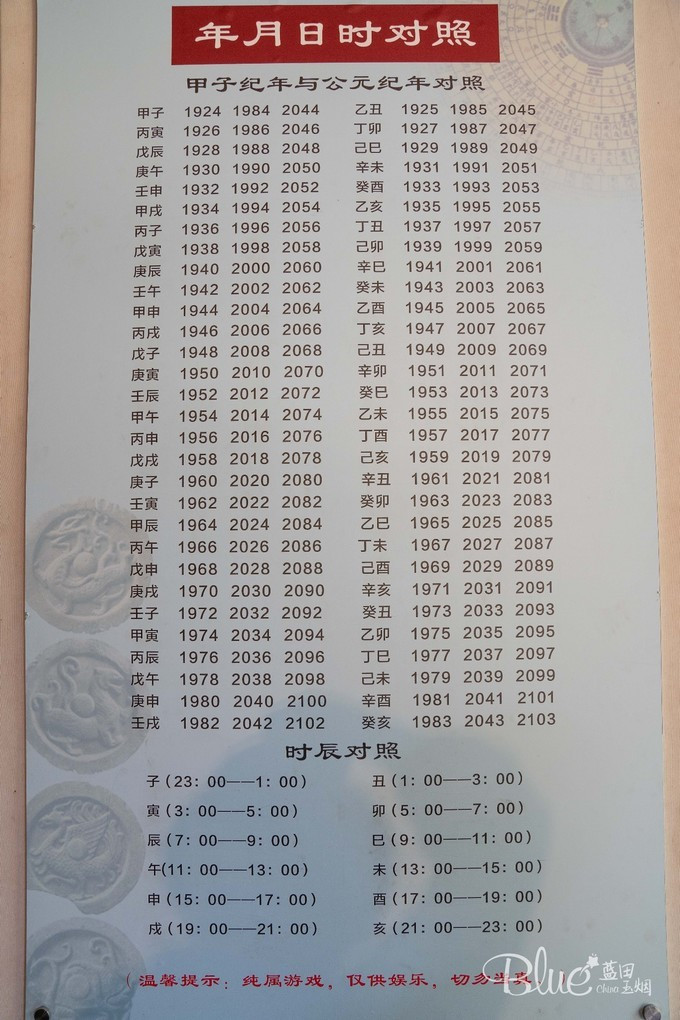 年月日时对照
甲子纪年与公元纪年对照
甲子 1924 1984 2044 乙丑 1925 1985 2045
丙寅 1926 1986 2046 丁卯 1927 1987 2047
戊辰 1928 1988 2048 己巳 1929 1989 2049
庚午 1930 1990 2050 辛未 1931 1991 2051
壬申 1932 1992 2052 癸酉 1933 1993 2053
甲戌 1934 1994 2054 乙亥 1935 1995 2055
丙子 1936 1996 2056 丁丑 1937 1997 2057
戊寅 1938 1998 2058 己卯 1939 1999 2059
庚辰 1940 2000 2060 辛巳 1941 2001 2061
壬午 1942 2002 2062 癸未 1943 2003 2063
甲申 1944 2004 2064 乙酉 1945 2005 2065
丙戌 1946 2006 2066 丁亥 1947 2007 2067
戊子 1948 2008 2068 己丑 1949 2009 2069
庚寅 1950 2010 2070 辛卯 1951 2011 2071
壬辰 1952 2012 2072 癸巳 1953 2013 2073
甲午 1954 2014 2074 乙未 1955 2015 2075
丙申 1956 2016 2076 丁酉 1957 2017 2077
戊戌 1958 2018 2078 己亥 1959 2019 2079
庚子 1960 2020 2080 辛丑 1961 2021 2081
壬寅 1962 2022 2082 癸卯 1963 2023 2083
甲辰 1964 2024 2084 乙巳 1965 2025 2085
丙午 1966 2026 2086 丁未 1967 2027 2087
戊申 1968 2028 2088 己酉 1969 2029 2089
庚戌 1970 2030 2090 辛亥 1971 2031 2091
壬子 1972 2032 2092 癸丑 1973 2033 2093
甲寅 1974 2034 2094 乙卯 1975 2035 2095
丙辰 1976 2036 2096 丁巳 1977 2037 2097
戊午 1978 2038 2098 己未 1979 2039 2099
庚申 1980 2040 2100 辛酉 1981 2041 2101
壬戌 1982 2042 2102 癸亥 1983 2043 2103
时辰对照
子（23：00——1：00） 丑（1：00——3：00）
寅（3：00——5：00） 卯（5：00——7：00）
辰（7：00——9：00） 巳（9：00——11：00）
午（11：00——13：00） 未（13：00——15：00）
申（15：00——17：00） 酉（17：00——19：00）
戌（19：00——21：00） 亥（21：00——23：00）
（温馨提示：纯属游戏，仅供娱乐，切勿当真。）
Blue China 蓝田玉烟